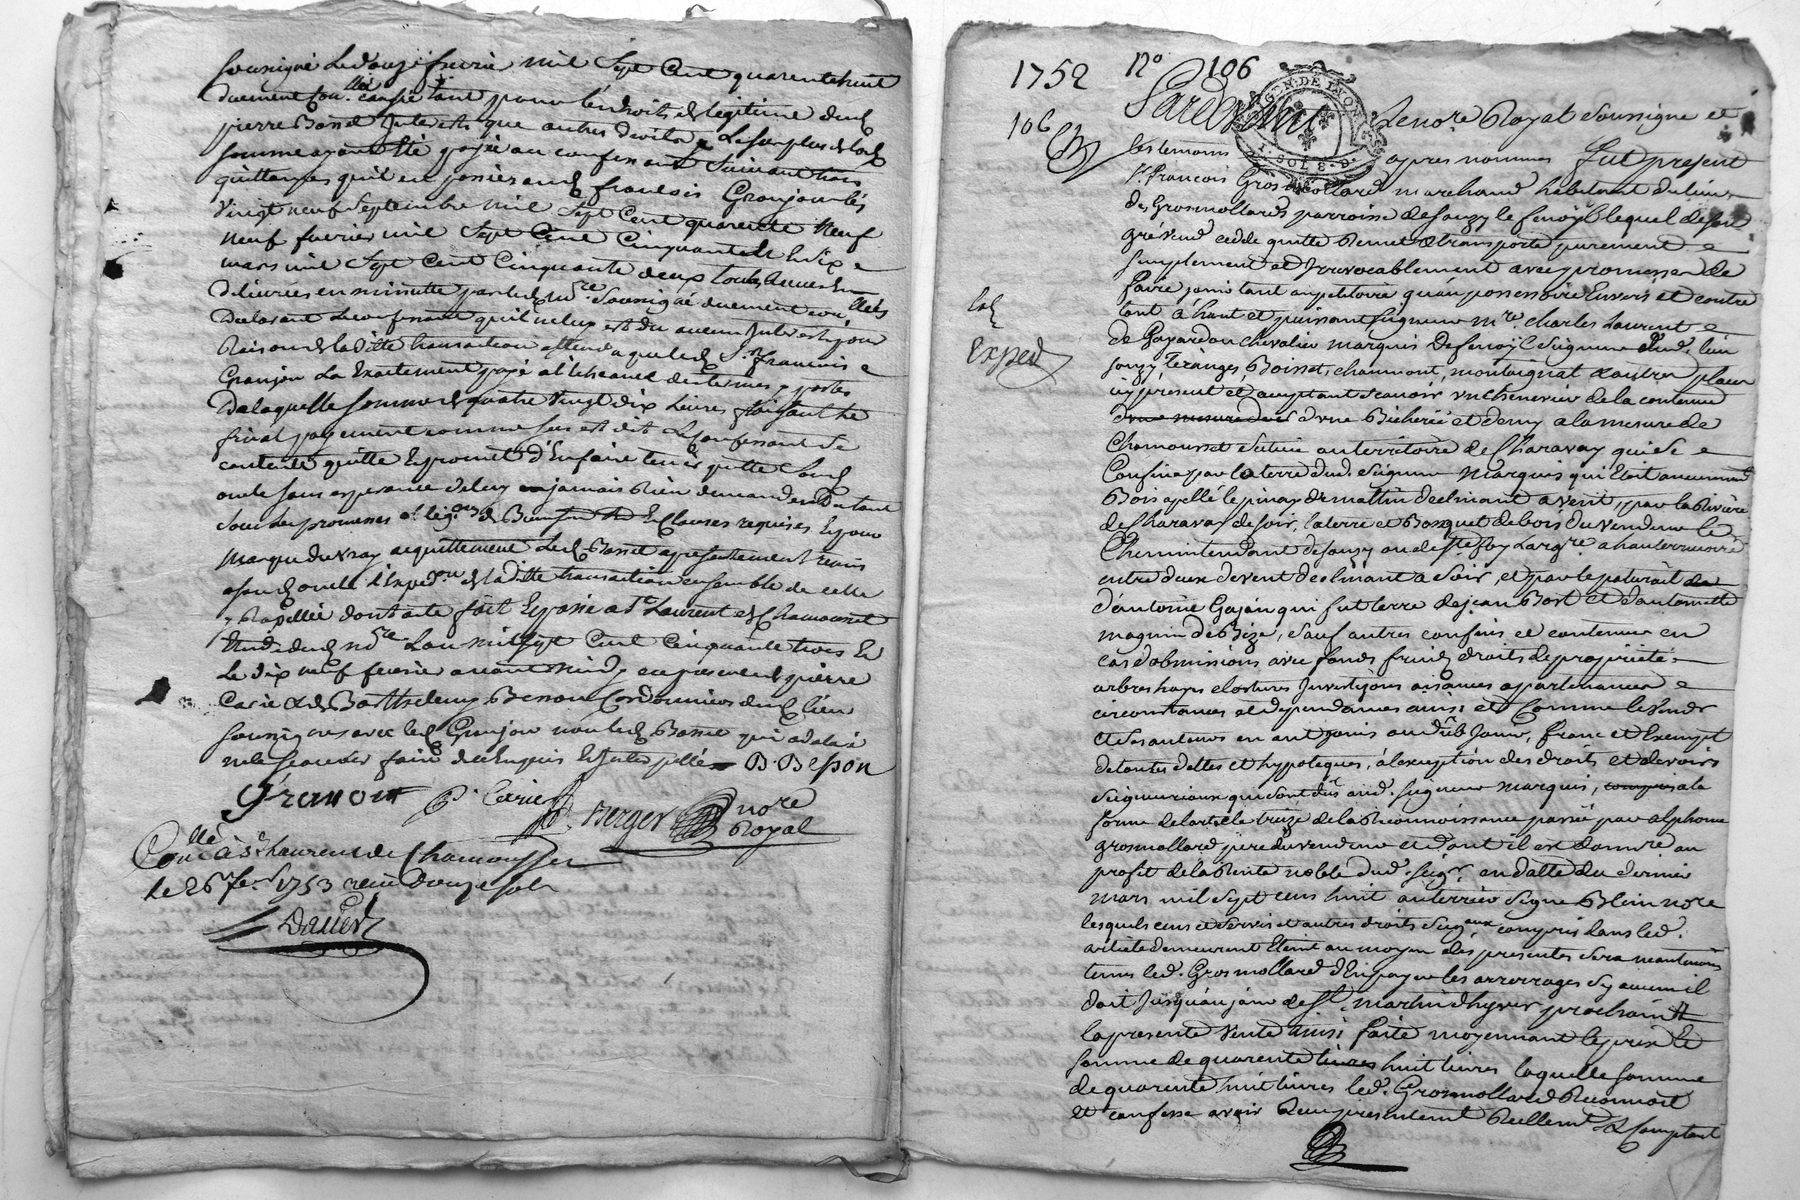 soussigné le douze fevrier mil sept cent quarente huit
duement con.llé tant pour les droits de legitime dud
pierre Basset interets que autres droits, le surplus de lad
somme ayant été payée au confessant suivant trois
quittances qu'il en a passées aud françois Granjon les
vingt neuf septembre mil sept cent quarente neuf
neuf fuvrier mil sept cent cinquante et un six
mars mil sept cent cinquante deux toutes
delivrées en minutte par led no.re soussigné duement con.llées
declarant le confessant qu'il ne luy est du aucun interest pour
raison de laditte transaction attendu que led S.r françois
Granjon la exactement payé a l'echeance des termes y portés
de laquelle somme de quatre vingt dix livres faisant le
final payement comme sus est dit le confessant se
contente quitte et promet d'en faire tenir quitte led
oncle sans esperance de luy en jamais rien demander
sous les promesses obligã.ons et clauses requises et pour
marque du vray acquittement led Basset a presentement remis
aud oncle l'exped.on de laditte transaction ensemble de celle
y rapellée dont acte fait et passé a S.t Laurent de Chamousset
Etude dud no.re L'an mil sept cent cinquante trois et
le dix neuf fevrier avant midy en presence de pierre
Carié et de Barthelemy Besson Cordonniers dud lieu
soussignés avec led Granjon non led Basset qui a declaré
ne le scavoir faire de ce enquis et interpellé B. Besson
Granjon P. Carié Berger no.re
Royal
Con.llé à S.t Laurent de Chamousset
le 26 fe. 1753 reçu douze sols
Daveid
1752 N.o 106
106
Pardevant Le no.re Royal soussigné et
GEN. DE LYON
I. SOL 8. D.
les temoins apres nommés fut present
S.r françois Grosmollard marchand habitant du lieu
des Grosmollards parroisse de Souzy le fenoÿl lequel de son
gré vend cedde quitte remet et transporte purement
simplement et irrevocablement avec promesse de
faire jouir tant au petitoire qu'au possessoire Envers et contre
tout à haut et puissant seigneur M.re charles Laurent
de Gayardon chevalier marquis de fenoÿl seigneur dud. lieu
souzy, Teranges, Boisset, chaumont, montaignat et autres places
icy present et acceptant scavoir un chenevier de la contenue
d'une Bicherée et demy a la mesure de
Chamousset situé au territoire de Charavay qui se
Confine par la terre dud. seigneur Marquis qui Etoit anciennement
Bois apellé le pinay de mattin declinant a vent, par la Riviere
de Charavay de soir, la terre et Bosquet de bois du vendeur le
Chemin tendant de souzy ou de S.te foy Larg.re a hauterivoire
entre deux de vent declinant a soir et par le paturât
d'antoine Gojon qui fut terre de jean Bort et d'antoinette
magnin de Bize, sauf autres confins et contenue en
cas d'obmissions avec fonds fruids droits de proprieté
arbres hayes clostures Investizons aisances appartenances
circonstances et dependances ainsi et Comme le Vend.r
et ses auteurs en ont jouis ou dûb jouir, franc et Exempt
de toutes dettes et hypoteques, à l'exeption des droits et devoirs
seigneuriaux qui sont dûs aud. seigneur marquis, a la
forme de l'article treize de la Reconnoissance passée par alphonse
grosmollard pere du vendeur et dont il est donné au
profit de la Rente noble dud. seig.r en datte du dernier
mars mil sept cens huit au terrier signé Blein no.re
lesquels cens et servis et autres droits seig.aux compris dans led.
article demeurent Eteint au moyen des presentes sera neantmoins
tenus led. Grosmollard d'En payer les arrerrages sy aucun il
doit jusqu'au jour de S.t Martin d'hyver prochain
la presente vente ainsi faite moyennant le prix et
somme de quarente huit livres laquelle somme
de quarente huit livres led. Grosmollard Reconnoit
et confesse avoir Reçu presentement Reellem.t et Comptant
Exped